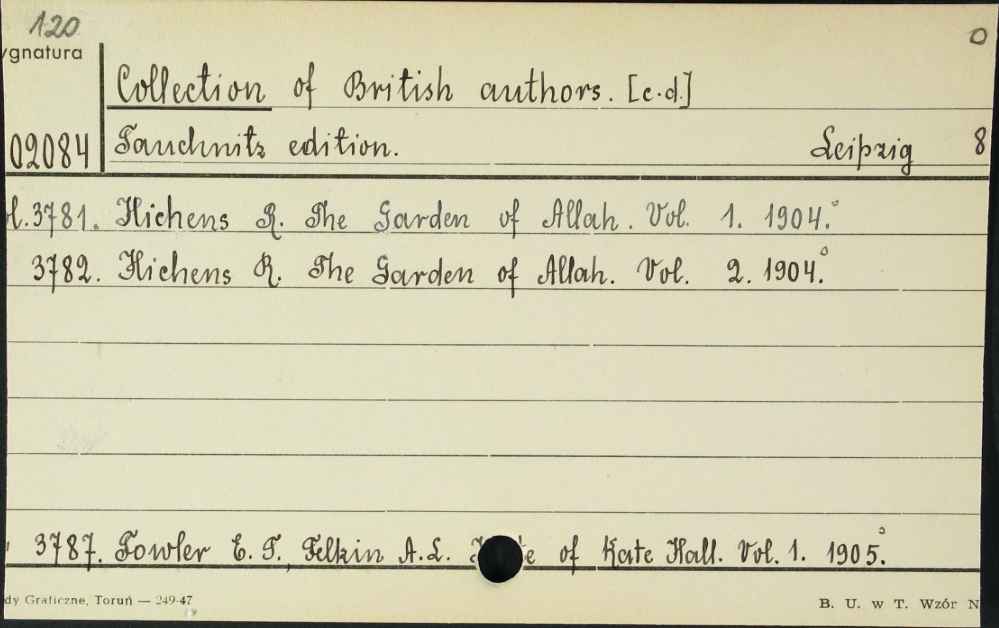 120
ygnatura
Collection of British authors. [c.d.]
02084 Tauchnitz edition. Leipzig 8
l.3781. Hichens R. The Garden of Allah. Vol. 1. 1904.
3782. Hichens R. The Garden of Allah. Vol. 2. 1904.
3787. Fowler E. T., Felkin A. L. of Kate Hall. Vol. 1. 1905.
dy Graficzne, Toruń — 249-47 B. U. w T. Wzór N